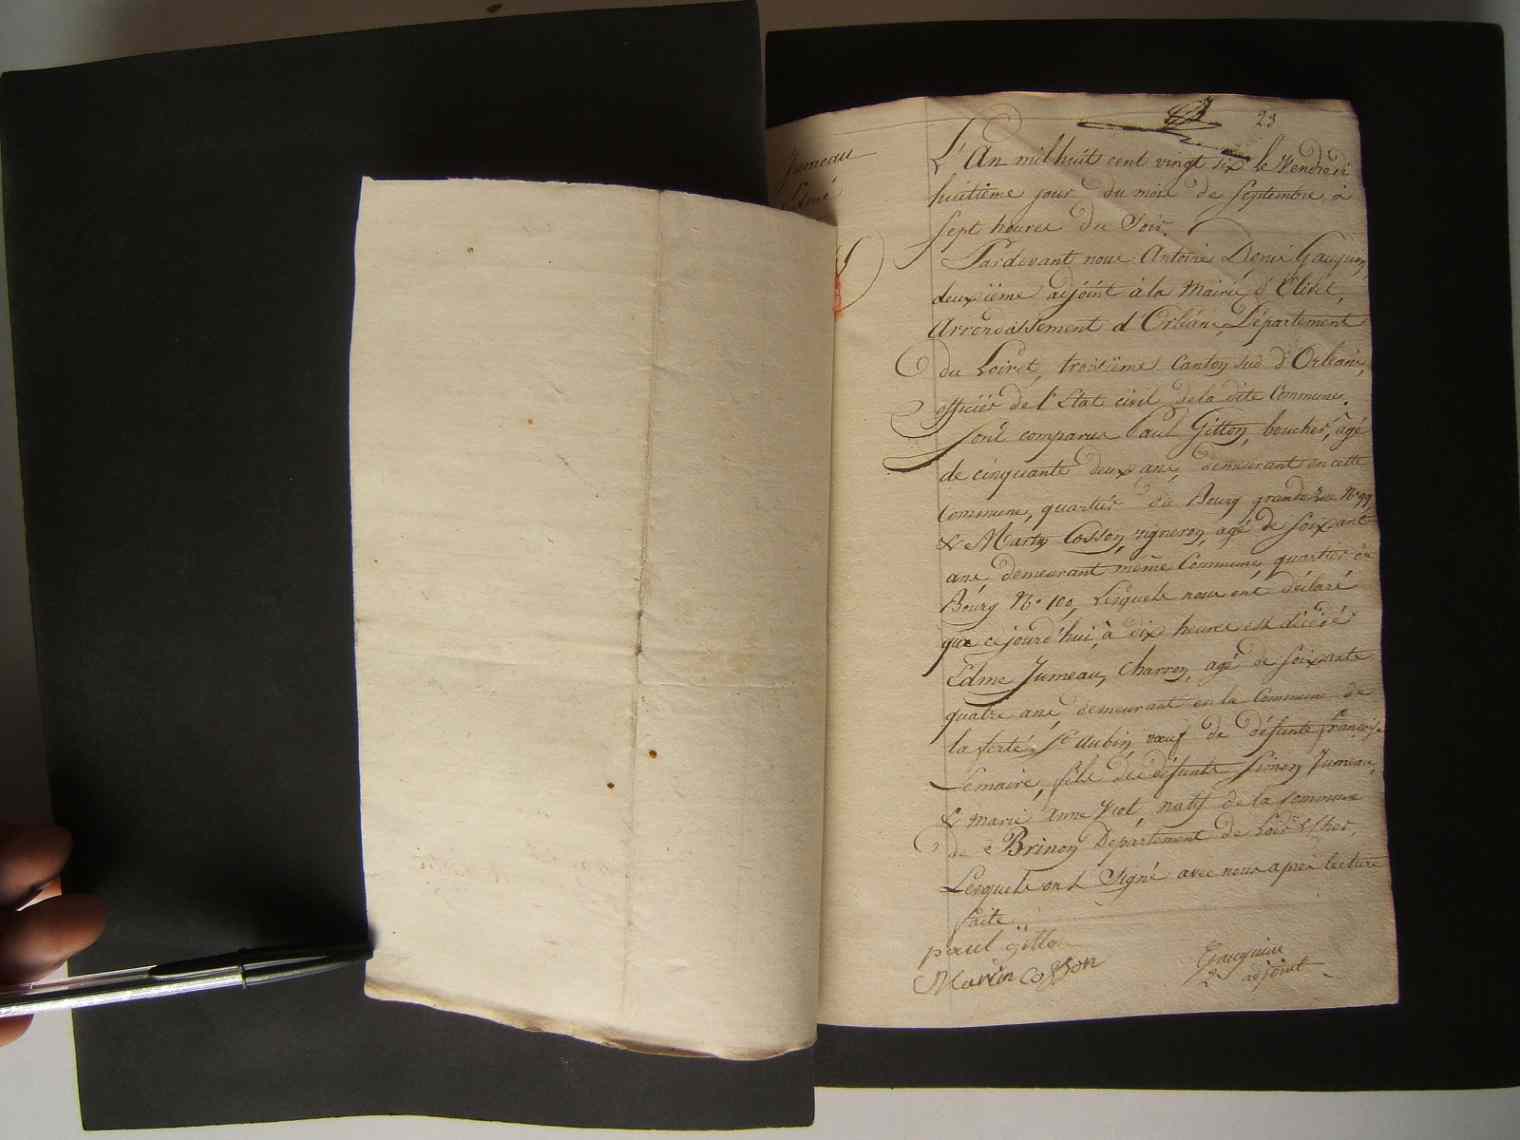 23
Jumeau
L'An mil huit cent vingt six le Vendredi
huitième jour du mois de Septembre, à
sept heures du Soir.
Pardevant nous Antoine Denis
deuxième adjoint à la Mairie d'Olivet,
Arrondissement d'Orléans, Département
du Loiret, troisième Canton sud d'Orléans,
officier de l'état civil de la dite Commune.
sont comparus Paul Gitton, boucher, âgé
de cinquante deux ans, demeurant en cette
Commune, quartier du Bourg grande Rue N° 99
& Martin Cosson, vigneron, agé de soixante
ans, demeurant même Commune, quartier du
Bourg N° 100, Lesquels nous ont déclaré
que cejourd'hui, à dix heures est décédé
Edme Jumeau, Charron, agé de soixante
quatre ans demeurant en la Commune de
la ferté St Aubin, veuf de défunte françoise
Lemaire, fils des défunts Simon Jumeau,
& Marie Anne Viol, natif de la commune
de Brinon Département de Loir & Cher,
Lesquels ont Signé avec nous après lecture
faite.
paul gitton
Martin Cosson
2e adjoint